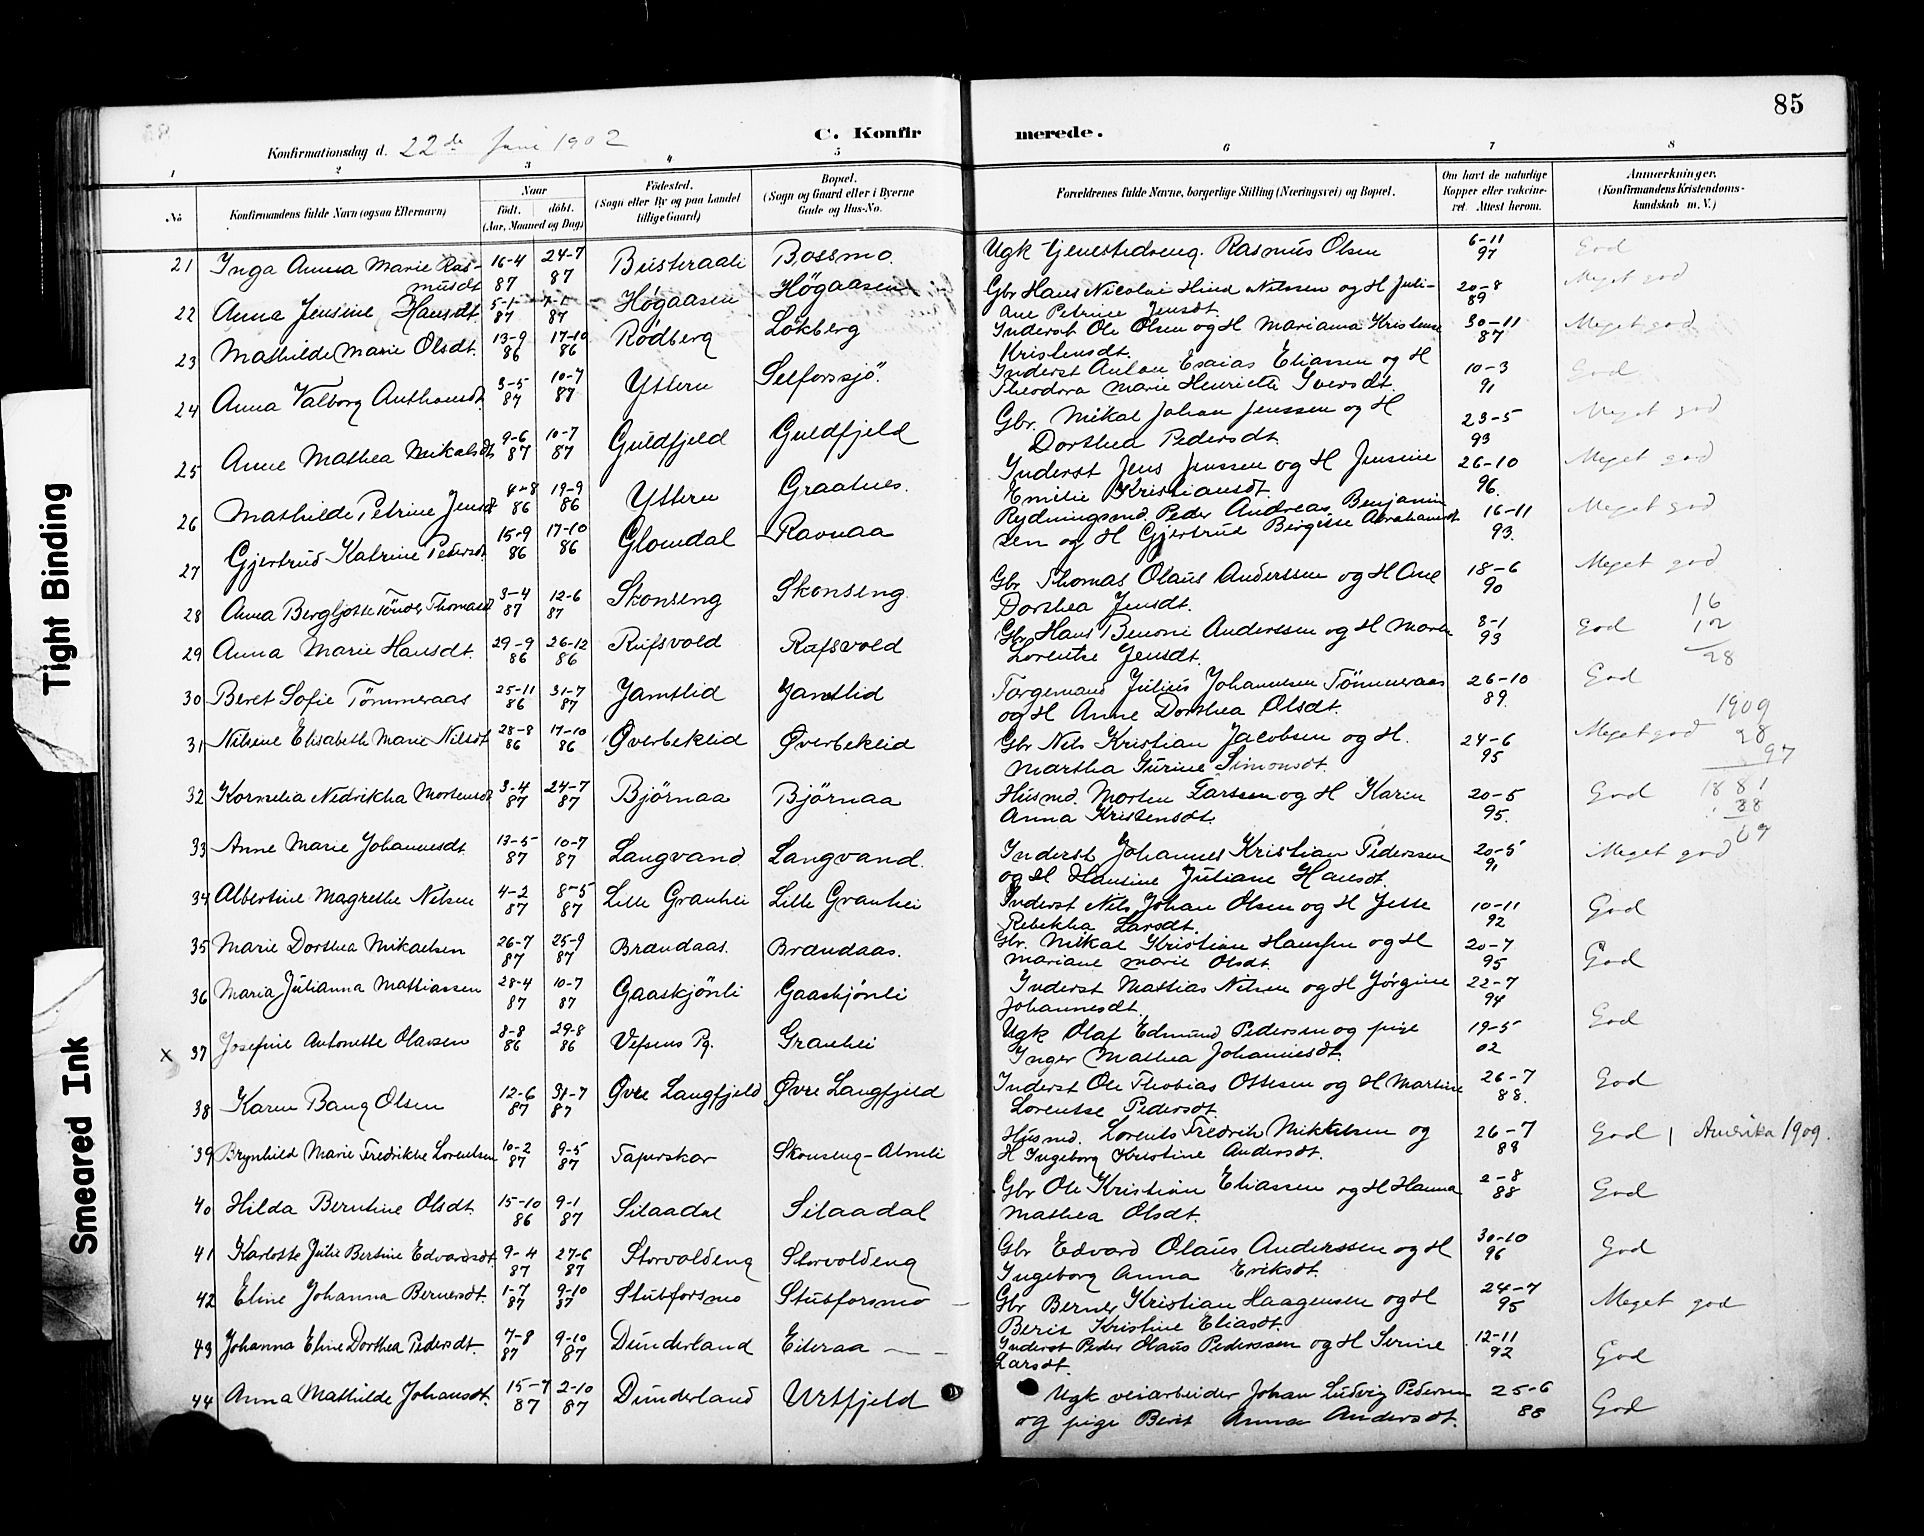 85
88
C. Konfirmerede.
Konfirmationsdag d. 22de Juni 1902
1 2 3 4 5 6 7 8
No
Konfirmandens fulde Navn (ogsaa Efternavn)
Naar
født. døbt.
(Aar, Maaned og Dag)
Fødested.
(Sogn eller By og paa Landet tillige Gaard)
Bopæl.
(Sogn og Gaard eller i Byerne Gade og Hus-No.
Forældrenes fulde Navne, borgerlige Stilling (Næringsvei) og Bopæl.
Om havt de naturlige Kopper eller vakcineret. Attest herom.
Anmærkninger.
(Konfirmandens Kristendomskundskab m. V.)
21 Inga Anna Marie Rasmusdt 16-4 87 24-7 87 Beisteraali Bossmo. Ugk tjenestedreng. Rasmus Olsen 6-11 97 God
22 Anna Jensine Hansdt. 5-1 87 87 Høgaasen Høgaasen Gbr Hans Nicolai Hind Nilssen og H Juliane Petrine Jensdt. 20-8 89 Meget god
23 Mathilde Marie Olsdt. 13-9 86 17-10 86 Rödberg Løkberg Inderst Ole Olsen og H Mariana Kristense Kristensdt. 30-11 87 Meget god
24 Anna Valborg Anthonsdt. 3-5 87 10-7 87 Yttern Selforssjö. Inderst Anton Esaias Eliassen og H Theodora Marie Henriette Iversdt. 10-3 91 God
25 Anne Mathea Mikalsdt 9-6 87 10-7 87 Guldfjeld Guldfjeld Gbr. Mikal Johan Jenssen og H Dorthea Pedersdt. 23-5 93 Meget god
26 Mathilde Petrine Jensdt 4-8 86 19-9 86 Yttern Graatnes. Inderst Jens Jenssen og H Jensine Emilie Kristiansdt. 26-10 96. Meget god
27 Gjertrud Katrine Pedersdt. 15-9 86 17-10 86 Glomdal Ravnaa Rydningsmd. Peder Andreas Benjaminsen og H Gjertrud Bergitte Abrahamsdt 16-11 93. Meget god
28 Anna Bergljotte Tönder Thomasdt 3-4 87 12-6 87 Skonseng Skonseng. Gbr Thomas Olaus Anderssen og H Ane Dorthea Jensdt. 18-6 90 Meget god
29 Anna Marie Hansdt. 29-9 86 26-12 86 Rufsvold Rufsvold Gbr Hans Benoni Anderssen og H Maren Lorentse Jensdt. 8-1 93 God
16
12
28
30 Beret Sofie Tömmeraas 25-11 86 31-7 87 Jamtlid Jamtlid Torgemand Julius Johannesen Tömmeraas og H Anne Dorthea Olsdt. 26-10 89. God
31 Nilsine Elisabeth Marie Nilsdt 28-8 86 17-10 86 Øverbeklid Øverbeklid Gbr Nils Kristian Jacobsen og H. Martha Gurine Simonsdt. 24-6 95 Meget god
1909
28
97
32 Kornelia Nedrikka Mortensdt 3-4 87 24-7 87 Björnaa Björnaa Husmd. Morten Larssen og H Karen Anna Kristensdt. 20-5 95. God
1881
28
69
33 Anne Marie Johannesdt. 13-5 87 10-7 87 Langvand. Langvand. Inderst Johannes Kristian Pederssen og H Hansine Juliane Hansdt. 20-5 91 Meget god
34 Albertine Magrethe Nilsen 4-2 87 8-5 87 Lille Granhei Lille Granhei Inderst Nils Johan Olsen og H Jette Rebekka Larsdt. 10-11 92 God
35 Marie Dorthea Mikaelsen 26-7 87 25-9 87 Brandaas. Brandaas. Gbr. Mikal Kristian Hanssen og H Mariane Marie Olsdt. 20-7 95 God
36 Maria Julianna Mattiassen 28-4 87 10-7 87 Gaaskjönli Gaaskjönli Inderst Mattias Nilsen og H Jørgine Johannesdt. 22-7 94 God
x 37 Josefine Antonette Olavsen 8-8 86 29-8 86 Vefsens Pg. Granhei Ugk Olaf Edmund Pedersen og pige Inger Mathea Johannesdt. 19-5 02 God
38 Karen Bang Olsen 12-6 87 31-7 87 Øvre Langfjeld Øvre Langfjeld Inderst Ole Thobias Ottesen og H Martine Lorentse Pedersdt. 26-7 88. God
39 Brynhild Marie Fredrikke Lorentsen 10-2 87 9-5 87 Taperskar Skonseng-Almli Husmd. Lorents Fredrik Mikkelsen og H Ingeborg Kristine Andersdt. 26-7 88 God | Amerika 1909.
40 Hilda Berntine Olsdt. 15-10 86 9-1 87 Silaadal Silaadal Gbr Ole Kristian Eliassen og H Hanna Mathea Olsdt. 2-8 88 God
41 Karlotte Julie Bertine Edvardsdt. 9-4 87 27-6 87 Storvoldeng Storvoldeng Gbr Edvard Olaus Anderssen og H Ingeborg Anna Eriksdt. 30-10 96 God
42 Eline Johanna Bernersdt. 1-7 87 9-10 87 Stubforsmo Stubforsmo Gbr Berner Kristian Haagensen og H Berit Kristine Eliasdt. 24-7 95 Meget god
43 Johanna Eline Dorthea Pedersdt. 7-8 87 9-10 87 Dunderland Eiteraa Inderst Peder Olaus Pederssen og H Serine Larsdt. 12-11 92 God
44 Anna Mathilde Johansdt. 15-7 87 2-10 87 Dunderland Urtfjeld Ugk veiarbeider Johan Ludvig Pedersen og pige Berit Anna Andersdt. 25-6 88 God
Tight Binding
Smeared Ink